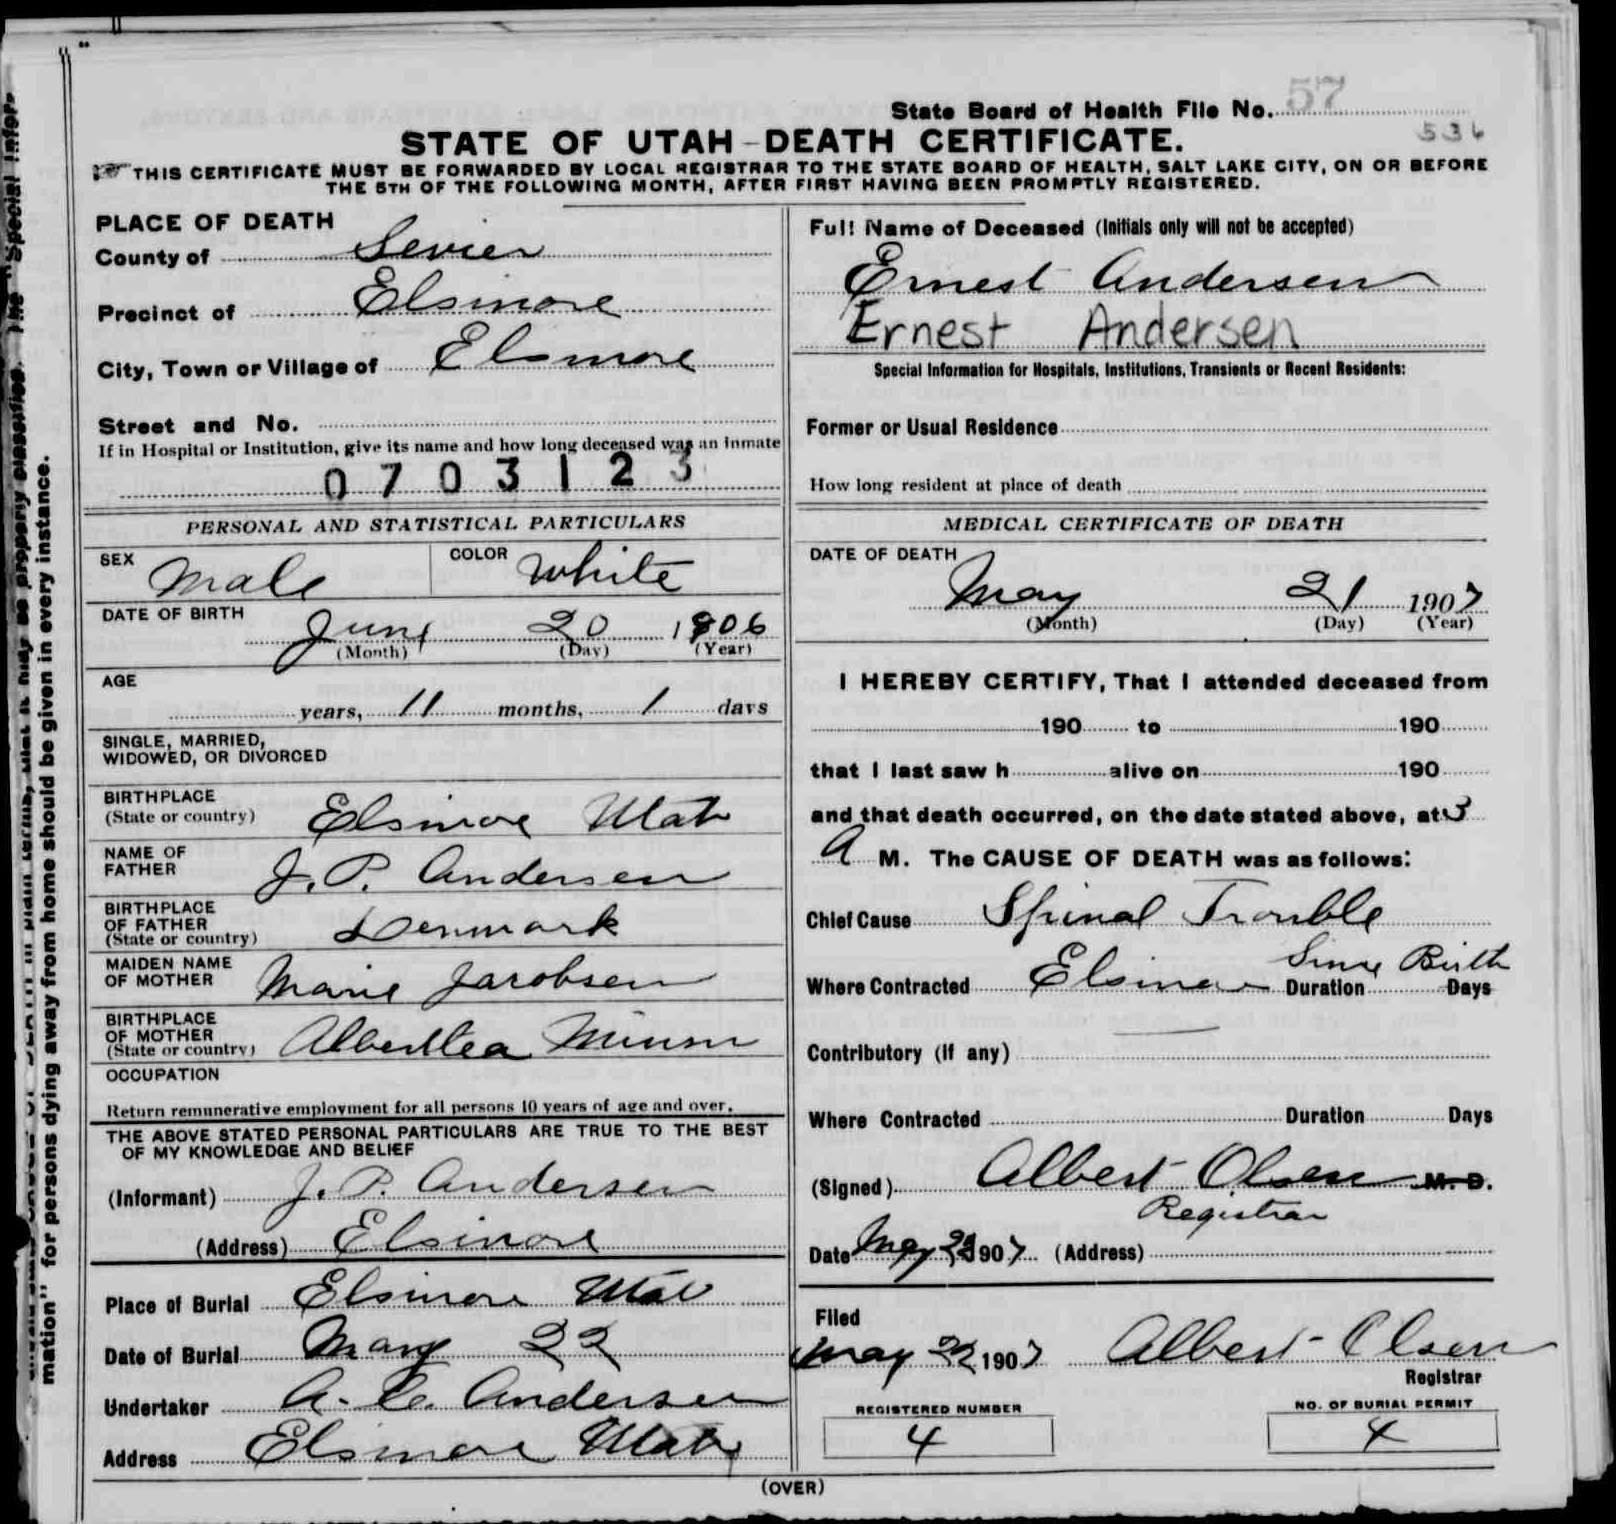 State Board of Health File No. 57
536
STATE OF UTAH-DEATH CERTIFICATE.
THIS CERTIFICATE MUST BE FORWARDED BY LOCAL REGISTRAR TO THE STATE BOARD OF HEALTH, SALT LAKE CITY, ON OR BEFORE
THE 5TH OF THE FOLLOWING MONTH, AFTER FIRST HAVING BEEN PROMPTLY REGISTERED.
PLACE OF DEATH
County of Sevier
Precinct of Elsinore
City, Town or Village of Elsinore
Street and No.
If in Hospital or Institution, give its name and how long deceased was an inmate
0703123
PERSONAL AND STATISTICAL PARTICULARS
SEX Male COLOR White
DATE OF BIRTH
June 20 1906
(Month) (Day) (Year)
AGE
years, 11 months, 1 days
SINGLE, MARRIED,
WIDOWED, OR DIVORCED
BIRTHPLACE
(State or country) Elsinore Utah
NAME OF
FATHER J. P. Andersen
BIRTHPLACE
OF FATHER
(State or country) Denmark
MAIDEN NAME
OF MOTHER Marie Jacobsen
BIRTHPLACE
OF MOTHER
(State or country) Albertlea Minn
OCCUPATION
Return remunerative employment for all persons 10 years of age and over.
THE ABOVE STATED PERSONAL PARTICULARS ARE TRUE TO THE BEST
OF MY KNOWLEDGE AND BELIEF
(Informant) J. P. Andersen
(Address) Elsinore
Place of Burial Elsinore Utah
Date of Burial May 22
Undertaker A. C. Andersen
Address Elsinore Utah
Full Name of Deceased (Initials only will not be accepted)
Ernest Andersen
Ernest Andersen
Special Information for Hospitals, Institutions, Transients or Recent Residents:
Former or Usual Residence
How long resident at place of death
MEDICAL CERTIFICATE OF DEATH
DATE OF DEATH
May 21 1907
(Month) (Day) (Year)
I HEREBY CERTIFY, That I attended deceased from
190 to 190
that I last saw h alive on 190
and that death occurred, on the date stated above, at 3
A M. The CAUSE OF DEATH was as follows:
Chief Cause Spinal Trouble
Since Birth
Where Contracted Elsinore Duration Days
Contributory (if any)
Where Contracted Duration Days
(Signed) Albert Olsen M. D.
Registrar
Date May 22 1907 (Address)
Filed
May 22 1907 Albert Olsen
Registrar
REGISTERED NUMBER
4
NO. OF BURIAL PERMIT
4
(OVER)
mation" for persons dying away from home should be given in every instance.